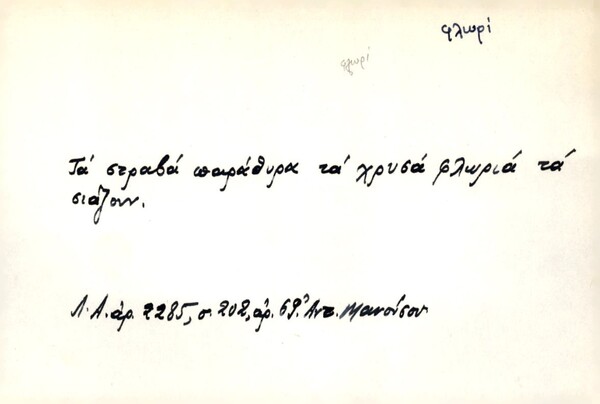 φλωρί
φλωρί
Τά στραβά παράθυρα τά χρυσά φλωριά τά
σιάζουν.
Λ.Α. άρ. 2285, σ. 202, άρ. 69. Ἀντ. Μανούσου